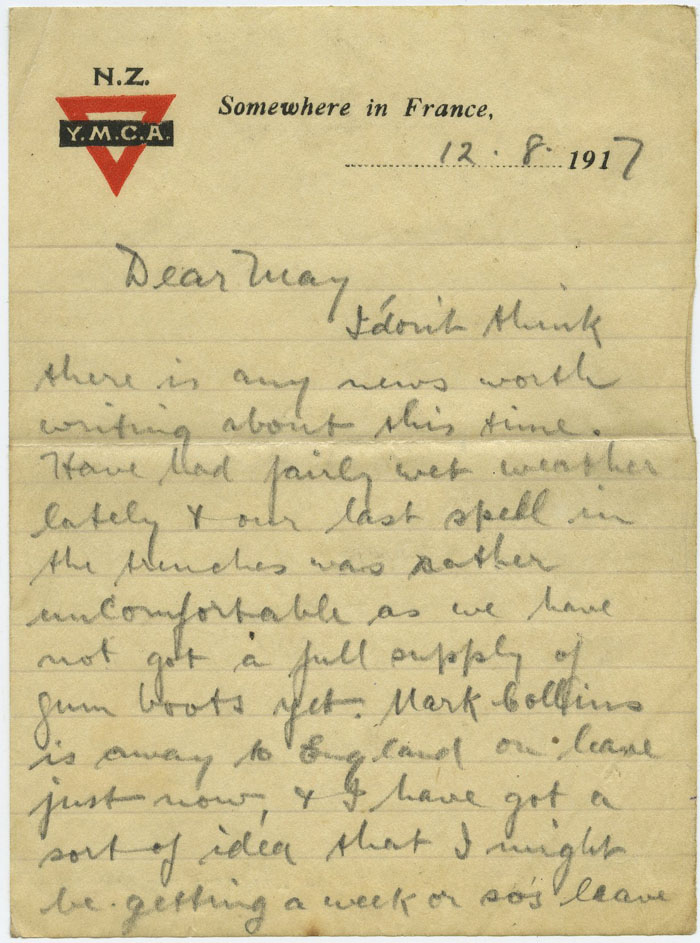 N.Z.
Y.M.C.A.
Somewhere in France,
12. 8. 1917
Dear May
I don't think
there is any news worth
writing about this time.
Have had fairly wet weather
lately & our last spell in
the trenches was rather
uncomfortable as we have
not got a full supply of
gum boots yet. Mark Collins
is away to England on leave
just now, & I have got a
sort of idea that I might
be getting a week or so's leave